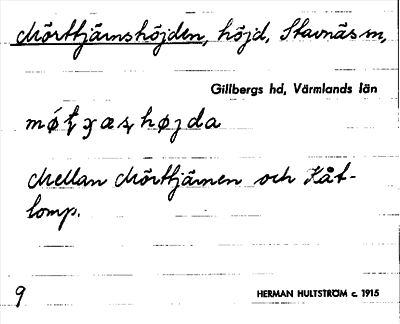 Mörttjärnshöjden, höjd, Stavnäs sn,
Gillbergs hd, Värmlands län
Mellan Mörttjärnen och Kåt-
tomp.
9
HERMAN HULTSTRÖM c. 1915